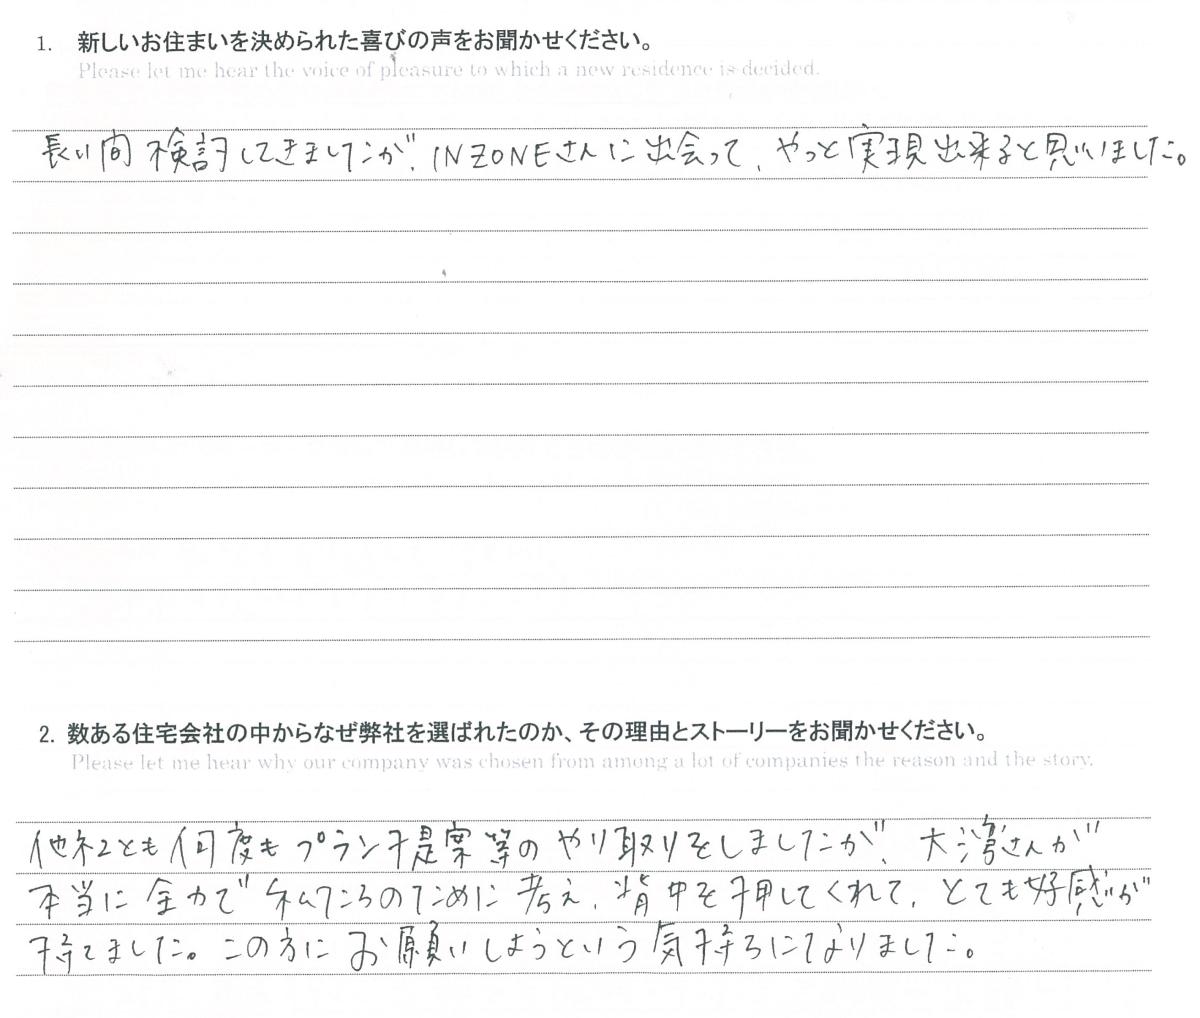 1. 新しいお住まいを決められた喜びの声をお聞かせください。
Please let me hear the voice of pleasure to which a new residence is decided.
長い間検討してきましたが、INZONEさんに出会って、やっと実現出来ると思いました。
2. 数ある住宅会社の中からなぜ弊社を選ばれたのか、その理由とストーリーをお聞かせください。
Please let me hear why our company was chosen from among a lot of companies the reason and the story.
他社とも何度もプラン提案等のやり取りをしましたが、大湾さんが
本当に全力で私たちのために考え、背中を押してくれて、とても好感が
持てました。この方にお願いしようという気持ちになりました。